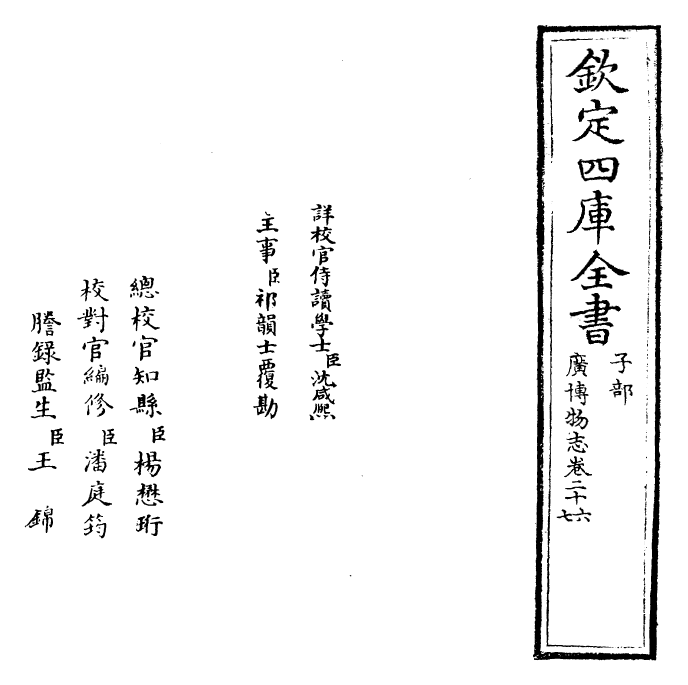 欽定四庫全書
子部
廣博物志卷二十六七
詳校官侍讀學士臣沈咸熙
主事臣祁韻士覆勘
總校官知縣臣楊懋珩
校對官編修臣潘庭筠
謄錄監生臣王錦